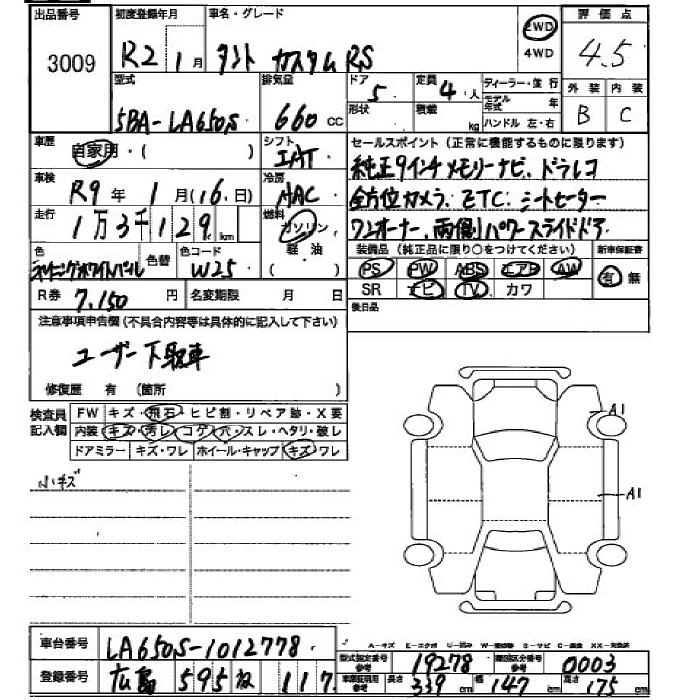 出品番号
3009
初度登録年月
R2年1月
車名・グレード
タント カスタムRS
2WD
4WD
評価点
4.5
外装 内装
B C
型式
5BA-LA650S
排気量
660 cc
ドア
5
形状
定員
4 人
積載
kg
ディーラー・並行
モデル年式 年
ハンドル 左・右
車歴
自家用・( )
シフト
IAT
車検
R9年1月(16日)
冷房
AAC
走行
1万3千129 km
燃料
ガソリン
軽油
色
シャイニングホワイトパール
色替
色コード
W25
R券 7,150 円
名変期限 月 日
セールスポイント(正常に機能するものに限ります)
純正9インチメモリーナビ、ドラレコ
全方位カメラ、ETC、シートヒーター
ワンオーナー、両側パワースライドドア
装備品(純正品に限り○をつけてください)
新車保証書
PS PW ABS エアB AW
SR ナビ TV カワ
有 無
後日品
注意事項申告欄(不具合内容等は具体的に記入して下さい)
ユーザー下取車
修復歴 有 (箇所 )
検査員記入欄
FW キズ・飛石・ヒビ割・リペア跡・X要
内装 キズ・汚レ・コゲ・穴・スレ・ヘタリ・破レ
ドアミラー キズ・ワレ ホイール・キャップ キズ・ワレ
小キズ
A1
A1
車台番号
LA650S-1012778
登録番号
広島 595 117
A-キズ E-エクボ
型式指定番号 参考
19278
類別区分番号 参考
0003
長さ 339 cm 幅 147 cm 高さ 175 cm